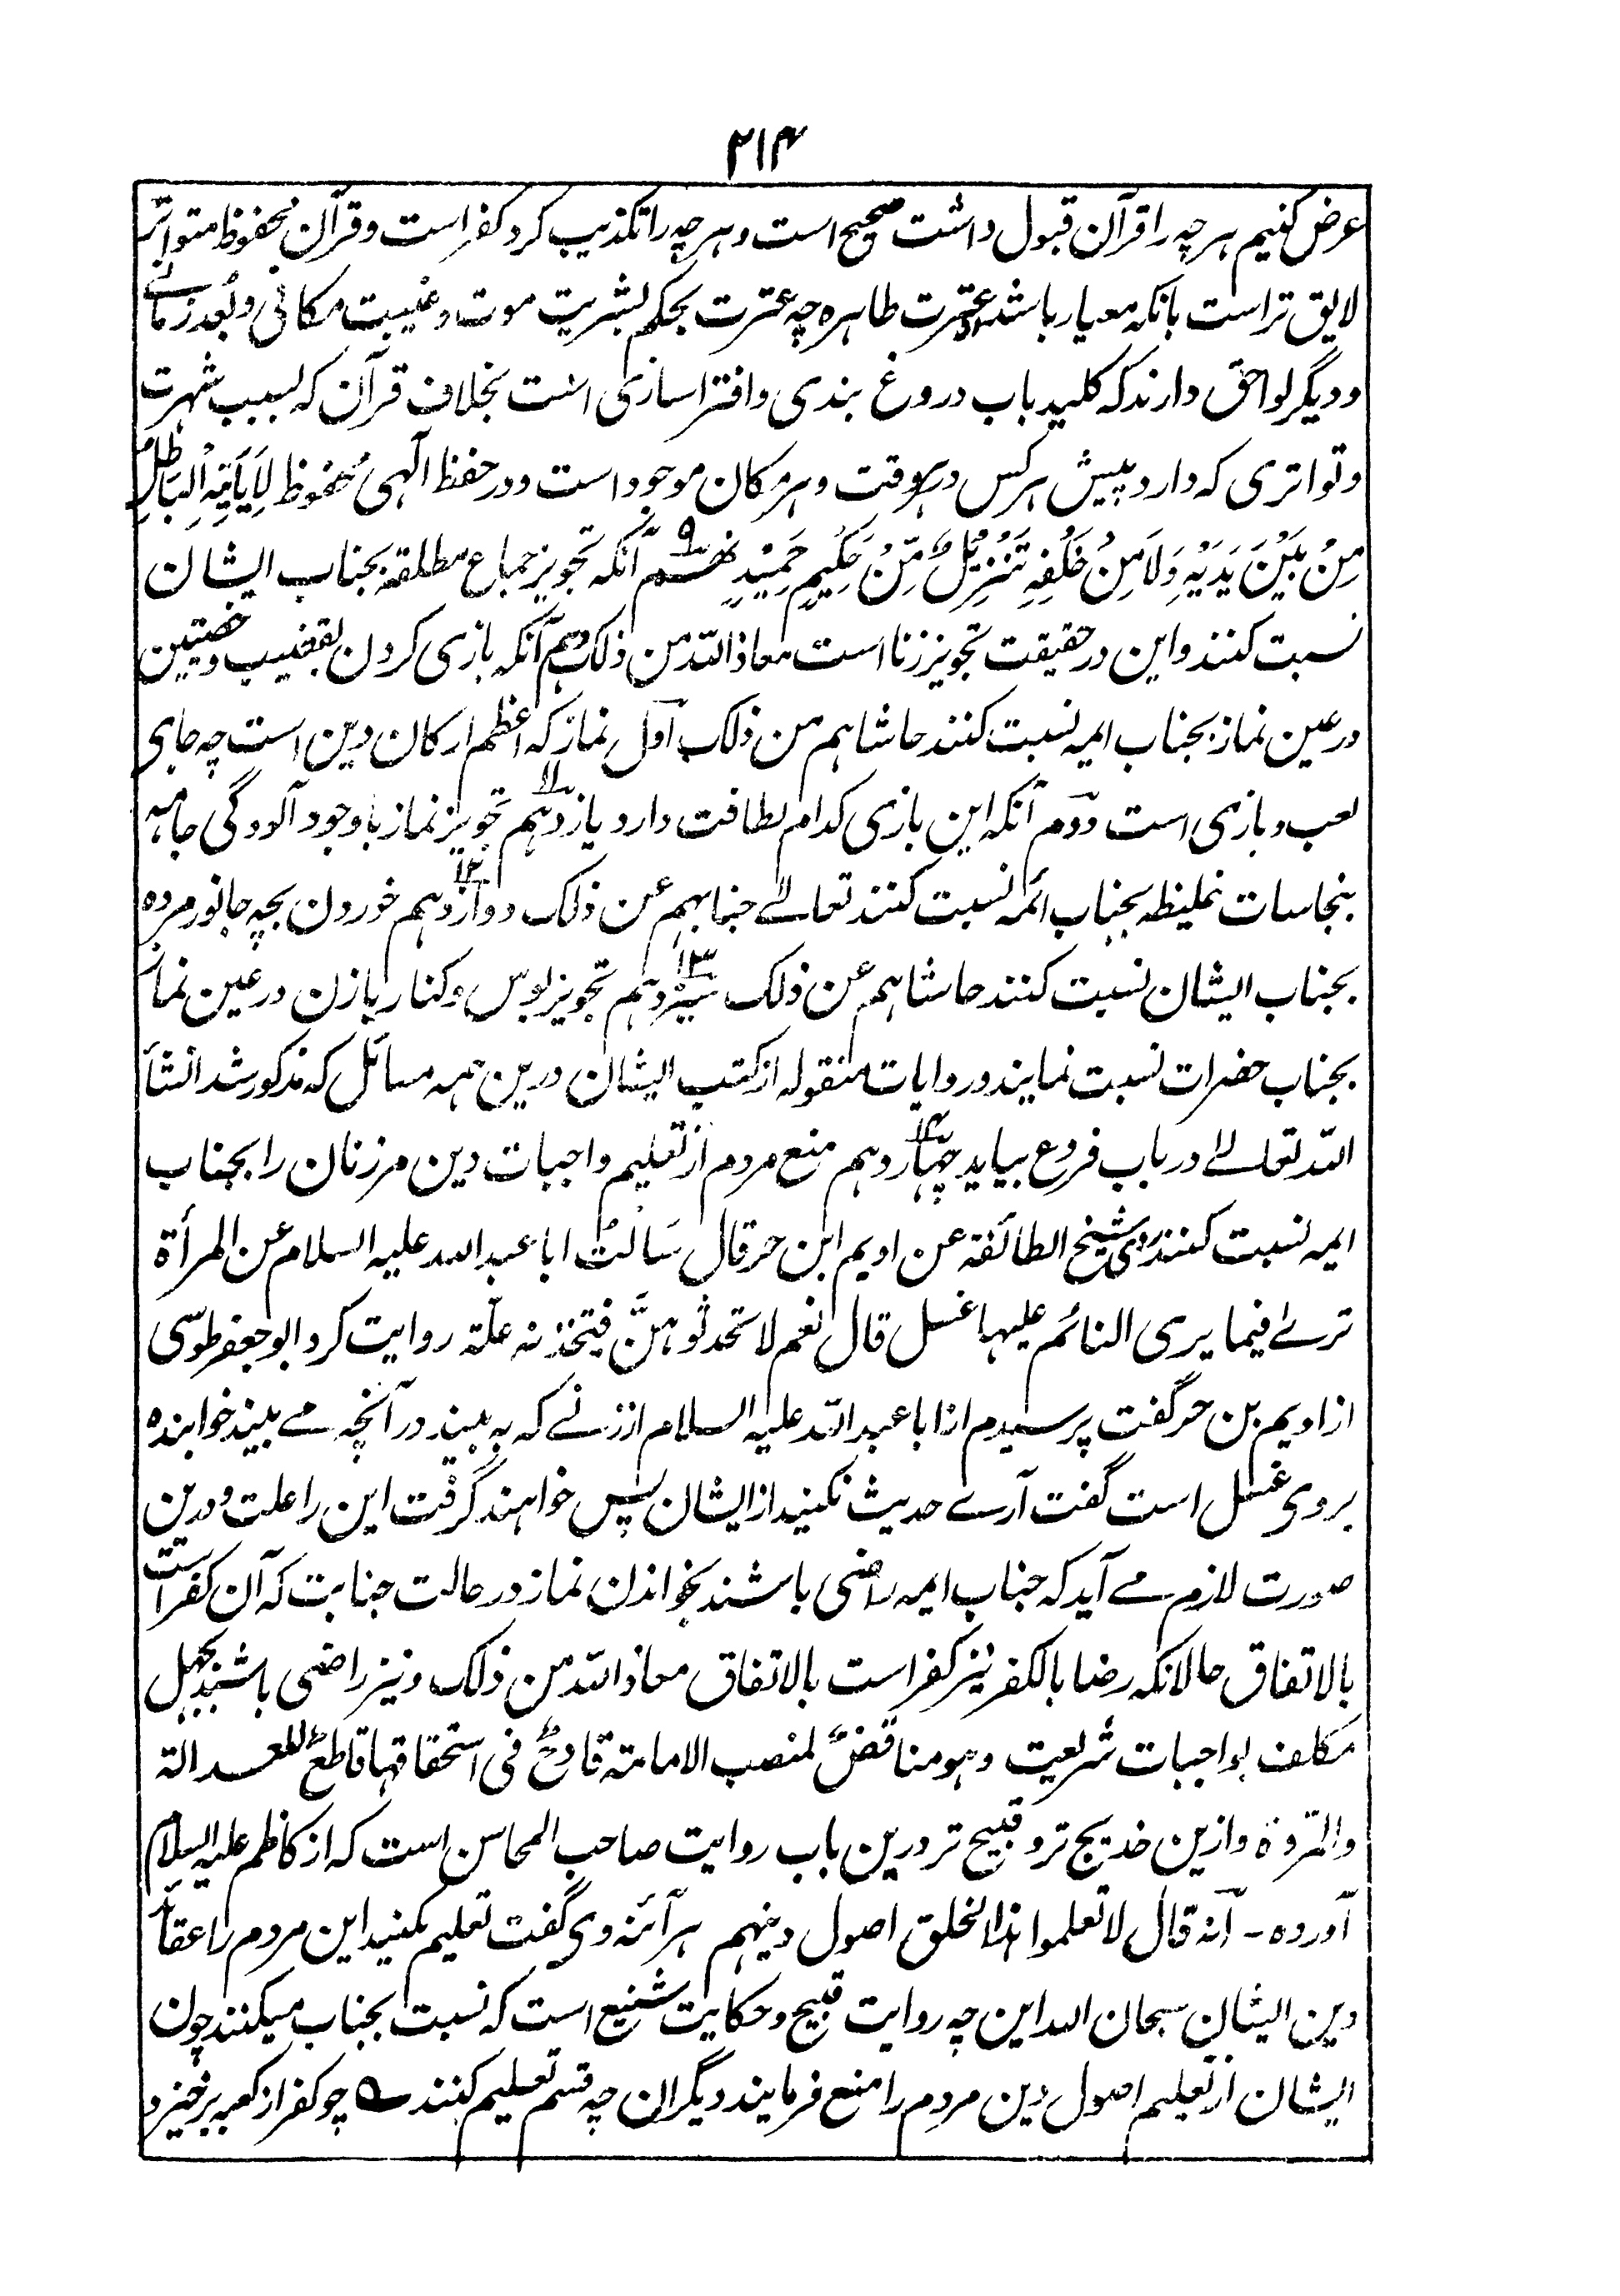 ۲۱۴
عرض کنیم هرچه را قرآن قبول داشت صحیح است و هرچه را تکذیب کرد کفر است و قرآن محفوظ متواتر
لایق تر است بانکه معیار باشد از عترت طاهره چه عترت بحکم بشریت موت و غیبت مکانی و بُعد زمانے
و دیگر لواحق دارند که کلید باب دروغ بندی و افترا سازی است بخلاف قرآن که بسبب شهرت
و تواتری که دارد پیش هرکس در هر وقت و هر مکان موجود است و در حفظ الٓهی محفوظ لَا یَأتِیْهِ الْبَاطِلُ
مِنْ بَیْنِ یَدَیْهِ وَلَا مِنْ خَلْفِهِ تَنْزِیْلٌ مِّنْ حَکِیمٍ حَمِیْدٍ نهم ۹ آنکه تجویز جماع مطلقه بجناب ایشان
نسبت کنند و این در حقیقت تجویز زنا است معاذ الله من ذلک دهم آنکه بازی کردن بقضیب و خصیتین
در عین نماز بجناب ایمه نسبت کنند حاشاهم من ذلک اول نماز که اعظم ارکان دین است چه جای
لعب و بازی است دوم آنکه این بازی کدام لطافت دارد یازدهم ۱۱ تجویز نماز با وجود آلودگی جامه
بنجاسات غلیظه بجناب ائمه نسبت کنند تعالے جنابهم عن ذلک دوازدهم ۱۲ خوردن بچه جانور مرده
بجناب ایشان نسبت کنند حاشاهم عن ذلک سیزدهم ۱۳ تجویز بوس و کنار با زن در عین نماز
بجناب حضرات نسبت نمایند و روایات منقوله از کتب ایشان درین همه مسائل که مذکور شد انشأ
الله تعالے در باب فروع بیاید چهاردهم ۱۴ منع مردم از تعلیم واجبات دین مر زنان را بجناب
ایمه نسبت کنند روی شیخ الطائفة عن ادیم ابن حر قال سَالتُ ابا عبد الله علیه السلام عن المرأة
ترے فیما یری النائم علیها غسل قال نعم لا تحدثوهنَّ فیتخذنه علّة روایت کرد ابو جعفر طوسی
از ادیم بن حر گفت پرسیدم از ابا عبد الله علیه السلام از زنے که به بیند در آنچه مے بیند خوابنده
بروی غسل است گفت آرے حدیث نکنید از ایشان پس خواهند گرفت این را علت و درین
صورت لازم مے آید که جناب ایمه راضی باشند بخواندن نماز در حالت جنابت که آن کفر است
بالاتفاق حالانکه رضا بالکفر نیز کفر است بالاتفاق معاذ الله من ذلک و نیز راضی باشند بجهل
مکلف بواجبات شریعت وهو مناقضٌ لمنصب الامامة قادحٌ فی استحقاقها قاطعٌ للعدالة
والمروة و ازین خدیج تر و قبیح تر درین باب روایت صاحب المحاسن است که از کاظم علیه السلام
آورده - انه قال لا تعلموا هذا الخلق اصول دینهم هرآئنه وی گفت تعلیم مکنید این مردم را عقاٸد
دین ایشان سبحان الله این چه روایت قبیح و حکایت شنیع است که نسبت بجناب میکنند چون
ایشان از تعلیم اصول دین مردم را منع فرمایند دیگران چه قسم تعلیم کنند ؎ چو کفر از کعبه برخیزد